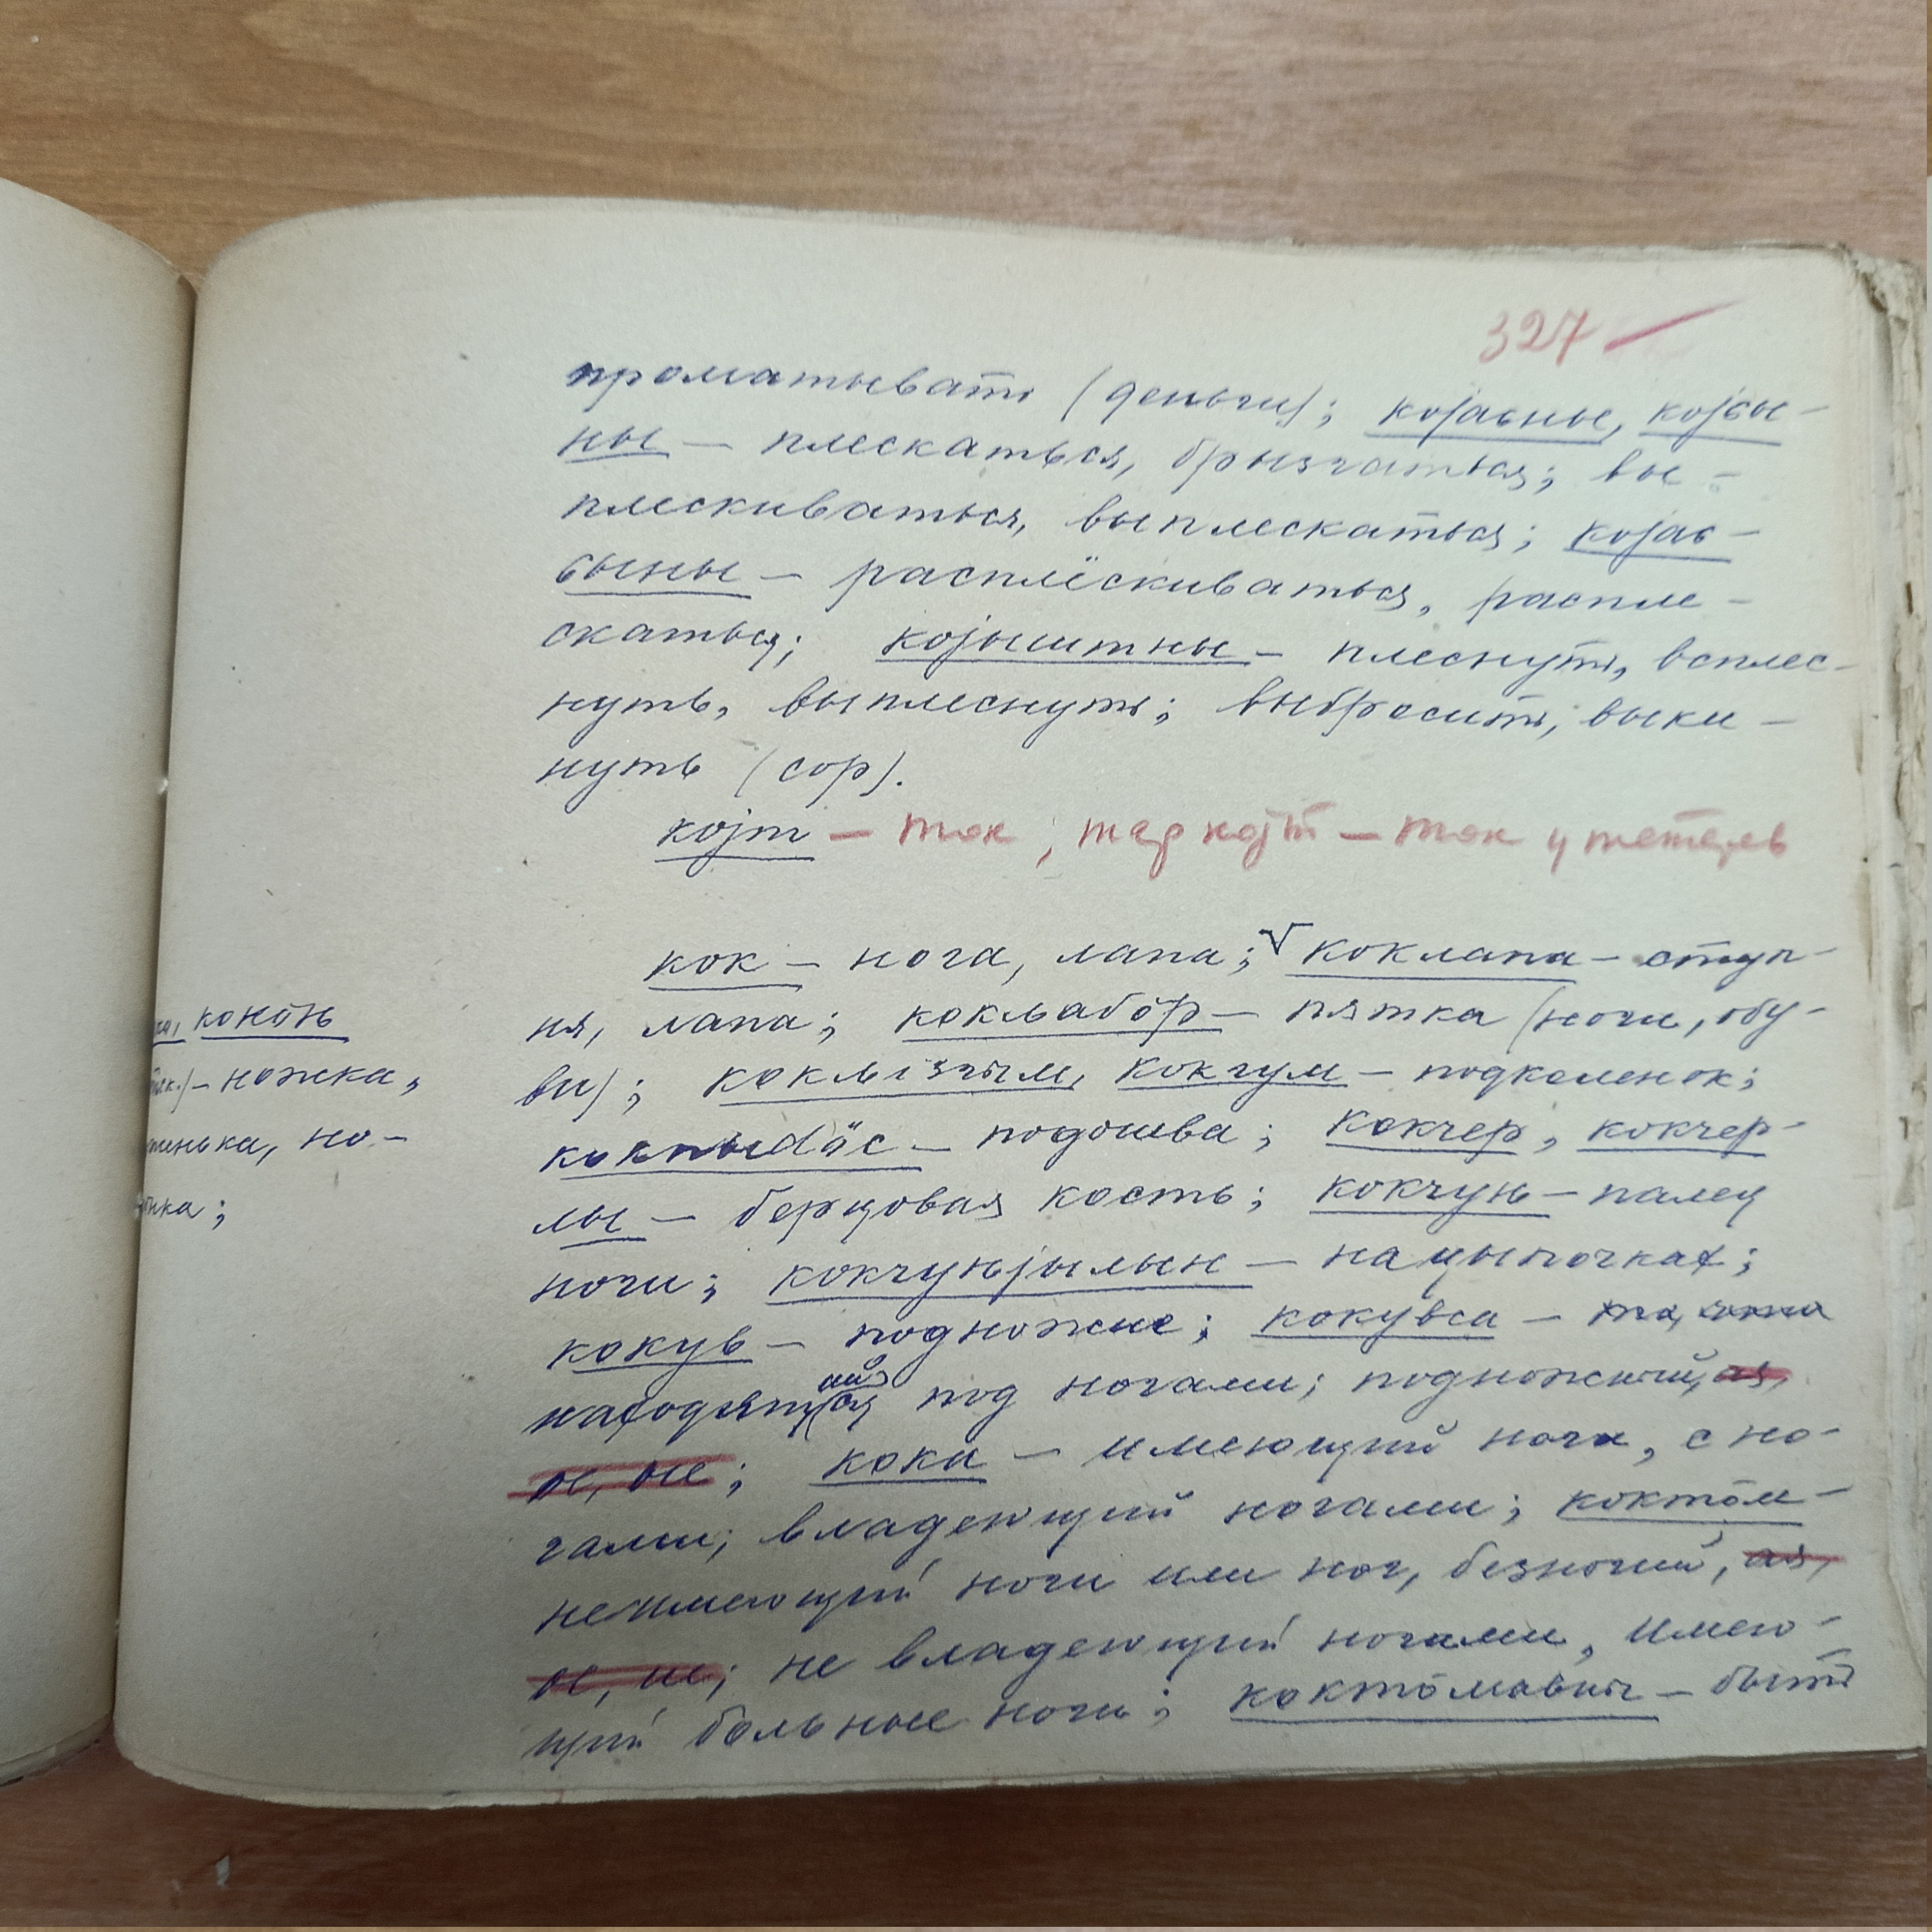 327
проматывать (деньги); којавны, којсы-
ны — плескаться, брызгаться; вы-
плескиваться, выплескаться; којас-
сыны — расплёскиваться, распле-
скаться; којыштны — плеснуть, всплес-
нуть, выплеснуть; выбросить, выки-
нуть (сор).
којт — ток; тар којт — ток у тетерь
кок — нога, лапа; √ коклапа — ступ-
ня, лапа; кокльабӧр — пятка (ноги, обу-
ви); кокгум — подколенок;
кокпыdӧс — подошва; кокчер, кокчер-
лы — берцовая кость; кокчунь — палец
ноги; кокчуньјылын — на цыпочках;
кокув — подножие; кокувса —
находящийся под ногами; подножний, ая,
ое, ые; кока — имеющий ноги, с но-
гами; владеющий ногами; коктӧм —
неимеющий ноги или ног, безногий, ая,
ое, ие; не владеющий ногами, имею-
щий больные ноги; коктӧмавны — быть
конӧнь
— ножка,
но-